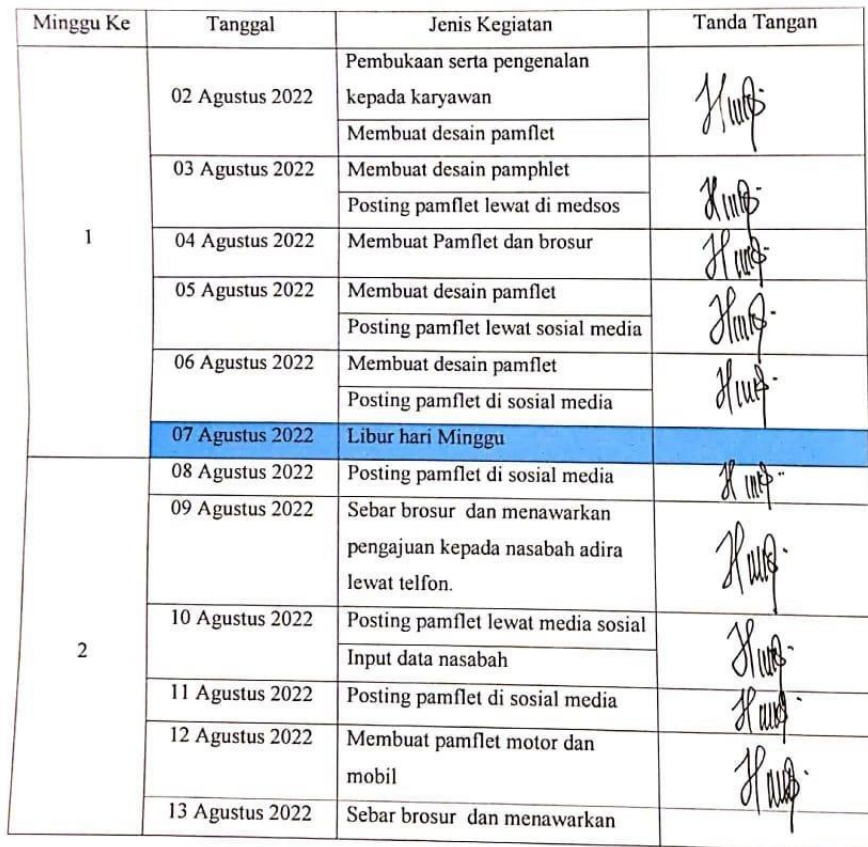 Minggu Ke Tanggal Jenis Kegiatan Tanda Tangan
1
02 Agustus 2022
Pembukaan serta pengenalan
kepada karyawan
Membuat desain pamflet
03 Agustus 2022 Membuat desain pamphlet
Posting pamflet lewat di medsos
04 Agustus 2022 Membuat Pamflet dan brosur
05 Agustus 2022 Membuat desain pamflet
Posting pamflet lewat sosial media
06 Agustus 2022 Membuat desain pamflet
Posting pamflet di sosial media
07 Agustus 2022 Libur hari Minggu
2
08 Agustus 2022 Posting pamflet di sosial media
09 Agustus 2022 Sebar brosur dan menawarkan
pengajuan kepada nasabah adira
lewat telfon.
10 Agustus 2022 Posting pamflet lewat media sosial
Input data nasabah
11 Agustus 2022 Posting pamflet di sosial media
12 Agustus 2022 Membuat pamflet motor dan
mobil
13 Agustus 2022 Sebar brosur dan menawarkan